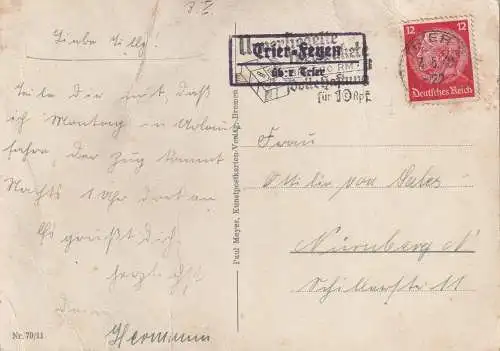 Liebe Tilly.
Teile dir mit, daß
ich Montag in Urlaub
fahre, der Zug kommt
Nachts 1 Uhr dort an
Es grüßt dich
herzlichst
dein
Hermann
Nr. 70/11
Paul Meyer, Kunstpostkarten-Verlag, Bremen
Trier-Feyen
üb. Trier
für 10 Rpf
12 12
TRIER
Deutsches Reich
Frau
Ottilie von
Nürnberg
Schillerstr. 11